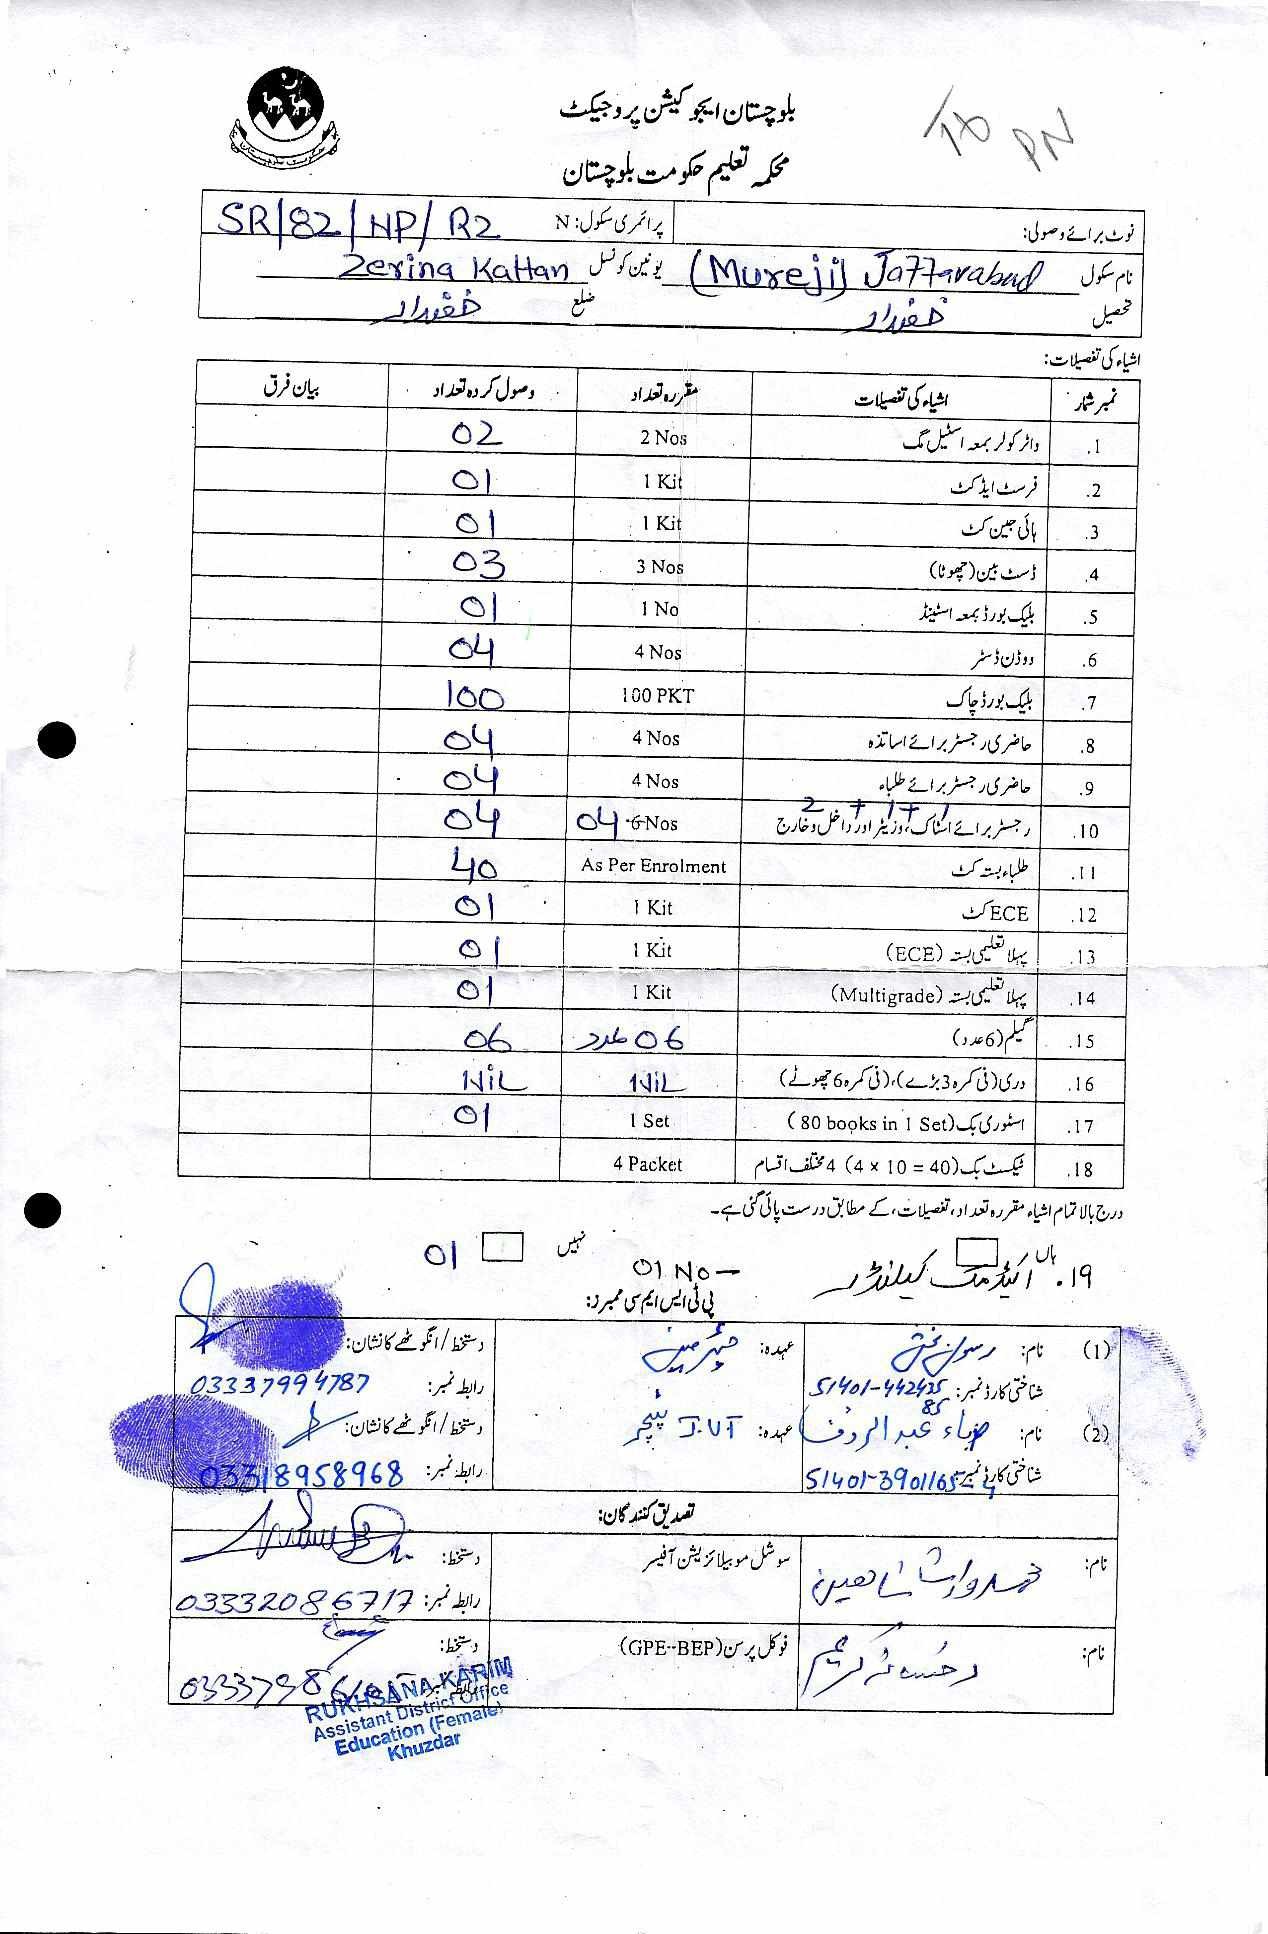 بلوچستان ایجوکیشن پروجیکٹ
محکمہ تعلیم حکومت بلوچستان
نوٹ برائے وصولی: پرائمری سکول: N SR/82/NP/R2
نام سکول (Mureji) Jaffarabad یونین کونسل Zerina Kattan
تحصیل خضدار ضلع خضدار
اشیاء کی تفصیلات:
نمبر شمار اشیاء کی تفصیلات مقررہ تعداد وصول کردہ تعداد بیان فرق
1. واٹر کولر بمعہ اسٹیل مگ 2 Nos 02
2. فرسٹ ایڈ کٹ 1 Kit 01
3. ہائی جین کٹ 1 Kit 01
4. ڈسٹ بین (چھوٹا) 3 Nos 03
5. بلیک بورڈ بمعہ اسٹینڈ 1 No 01
6. ووڈن ڈسٹر 4 Nos 04
7. بلیک بورڈ چاک 100 PKT 100
8. حاضری رجسٹر برائے اساتذہ 4 Nos 04
9. حاضری رجسٹر برائے طلباء 4 Nos 04
2 + 1 + 1
10. رجسٹر برائے اسٹاک، وزیٹر اور داخل و خارج 04 6 Nos 04
11. طلباء بستہ کٹ As Per Enrolment 40
12. ECE کٹ 1 Kit 01
13. پہلا تعلیمی بستہ (ECE) 1 Kit 01
14. پہلا تعلیمی بستہ (Multigrade) 1 Kit 01
15. گیلم (6 عدد) 06 عدد 06
16. دری (فی کمرہ 3 بڑے)، (فی کمرہ 6 چھوٹے) NiL NiL
17. اسٹوری بک (80 books in 1 Set) 1 Set 01
18. ٹیکسٹ بک (4 x 10 = 40) 4 مختلف اقسام 4 Packet
درج بالا تمام اشیاء مقررہ تعداد، تفصیلات، کے مطابق درست پائی گئی ہے۔
ہاں نہیں
19. کیلنڈر 01 No 01
پی ٹی ایس ایم سی ممبرز:
(1) نام: رسول بخش عہدہ: چیئرمین دستخط / انگوٹھے کا نشان:
شناختی کارڈ نمبر: رابطہ نمبر: 03337994787
(2) نام: ضیاء عبدالرؤف عہدہ: J.V.T ٹیچر دستخط / انگوٹھے کا نشان:
شناختی کارڈ نمبر: رابطہ نمبر: 03318958968
تصدیق کنندگان:
نام: سوشل موبیلائزیشن آفیسر دستخط:
رابطہ نمبر: 03332086717
نام: فوکل پرسن (GPE-BEP) دستخط:
RUKHSANA KARIM
Assistant District Office
Education (Female)
Khuzdar